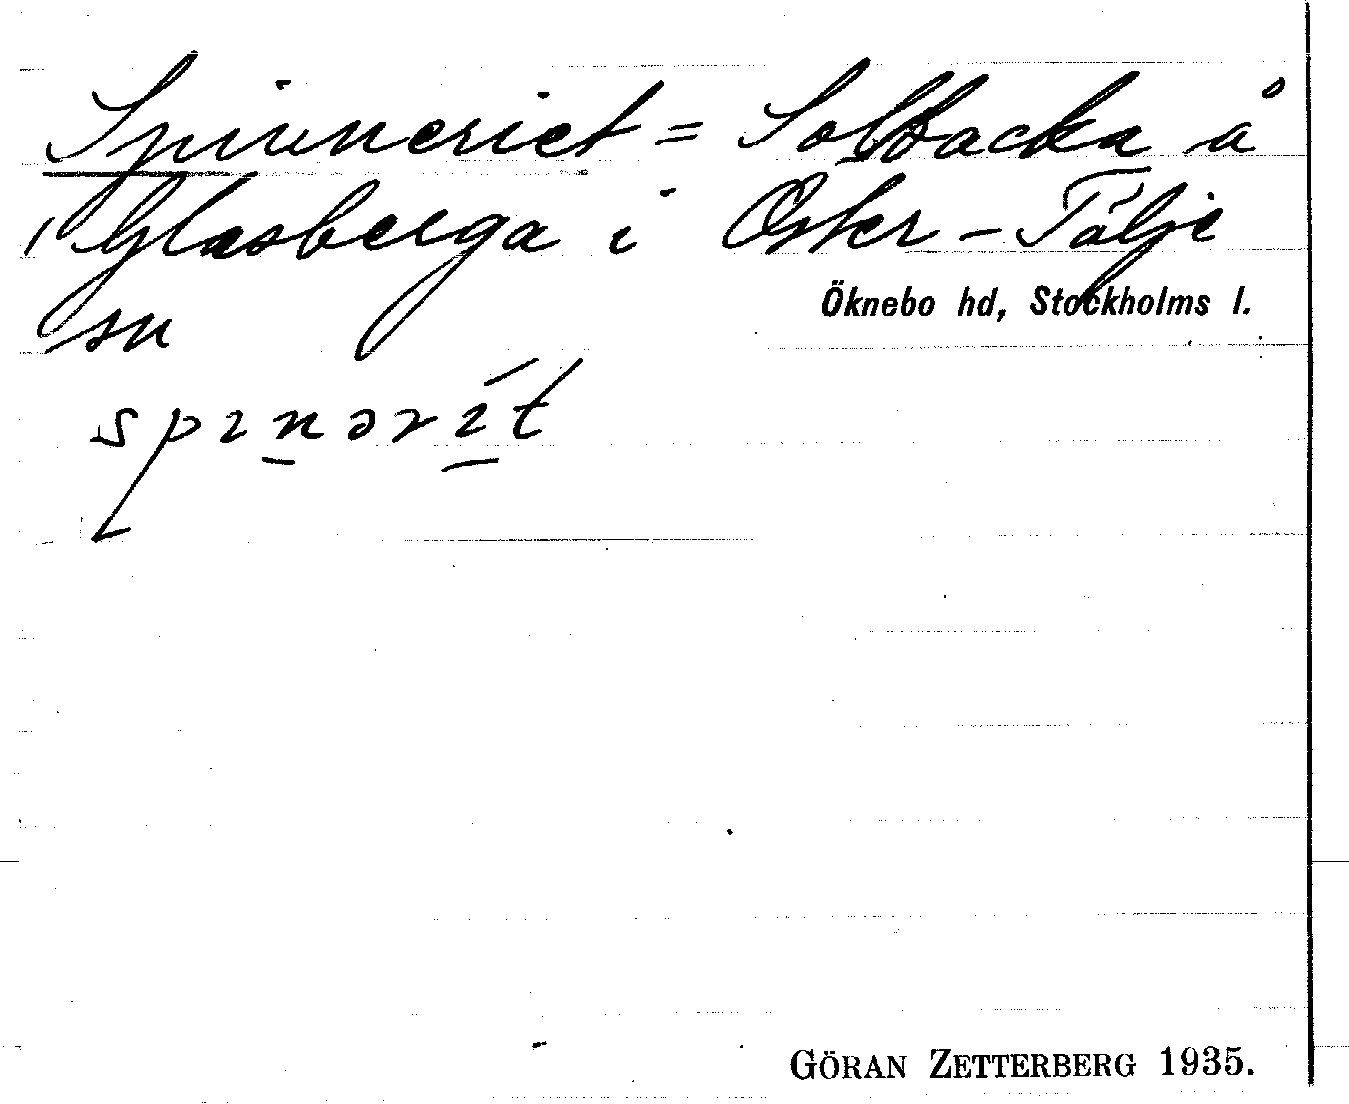 Spinneriet = Solbacka å
Glasberga i Öster-Tälje
sn
Öknebo hd, Stockholms l.
spɪnərít
GÖRAN ZETTERBERG 1935.